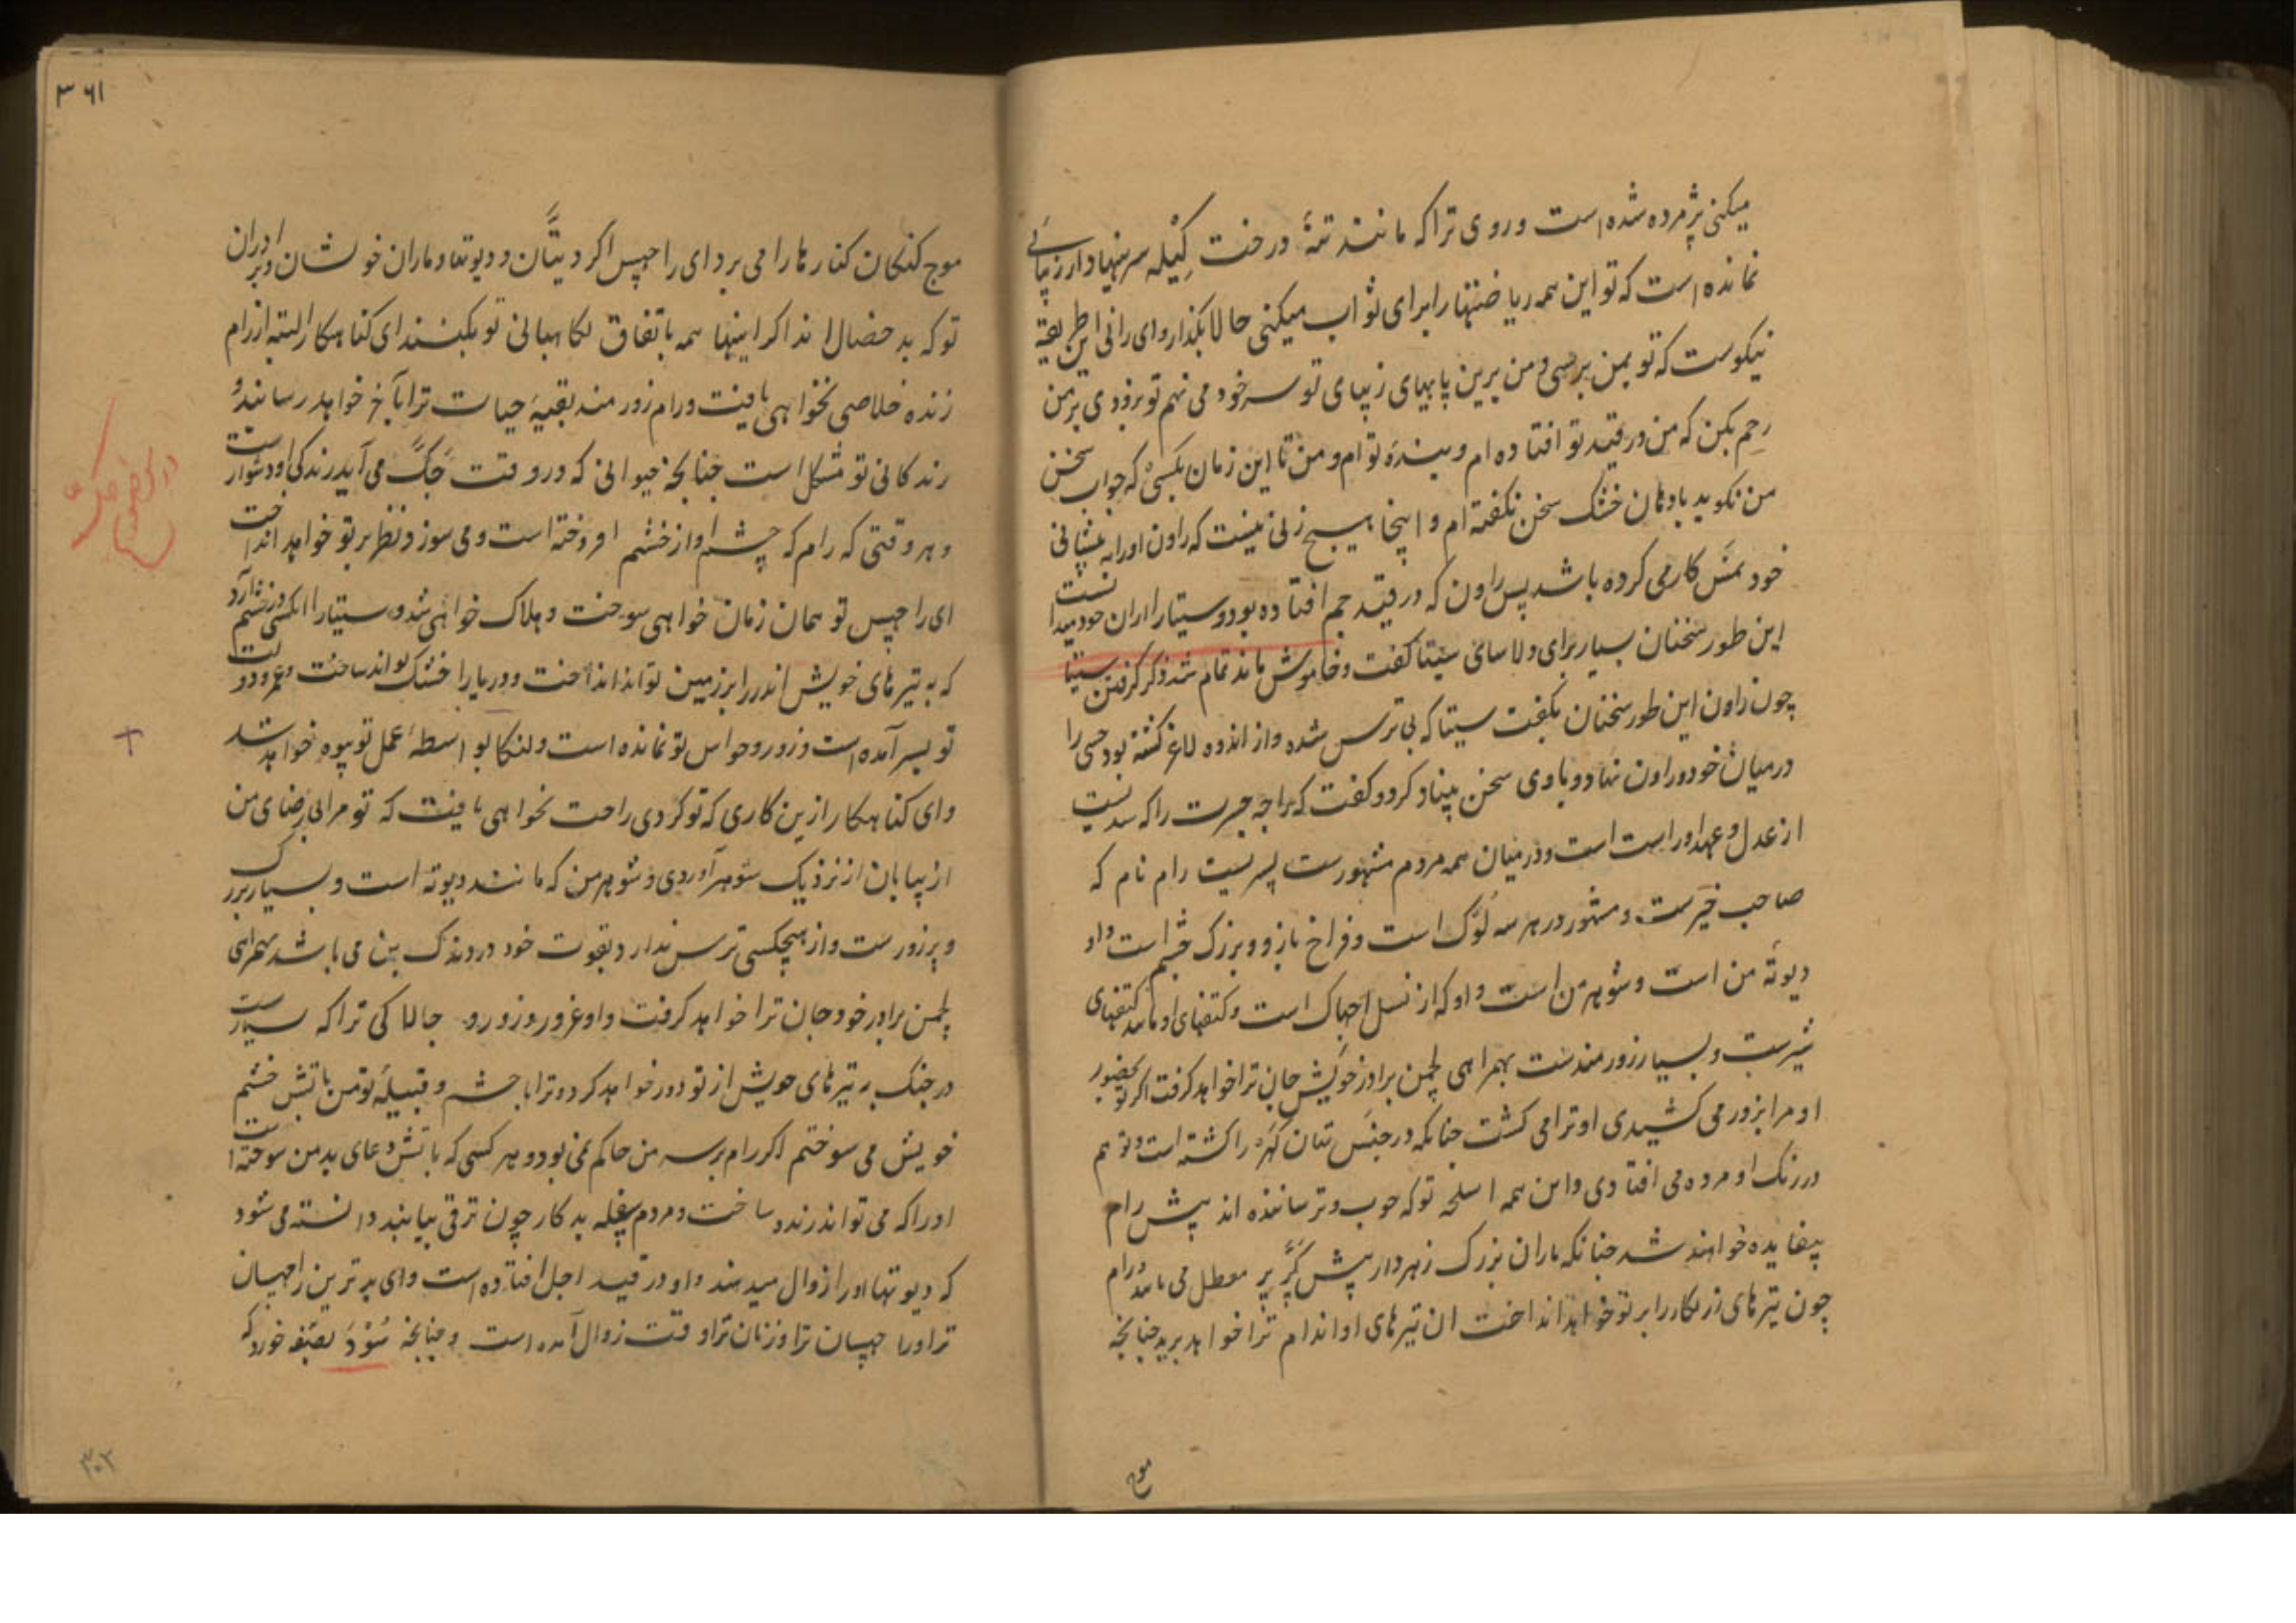 میکنی پژمرده شده است و روی ترا که مانند تنهٔ درخت کیله سرینها دارد زیبائی
نمانده است که تو این همه ریاضتها را برای ثواب میکنی حالا بگذار و ای رانی این طریقه
نیکوست که تو بمن برسی و من برین پایهای زیبای تو سر خود می نهم تو بزودی بر من
رحم بکن که من در قید تو افتاده ام و بندهٔ تو ام و من تا این زمان بکسی که جواب سخن
من نگوید بادهان خشک سخن نگفته ام و اینجا هیچ زنی نیست که راون او را به پیشانی
خود نمسکار می کرده باشد پس راون که در قید جم افتاده بود و سیتا را از ان خود میدانست
این طور سخنان بسیار برای دلاسای سیتا گفت و خاموش ماند تمام شد ذکر گرفتن سیتا
چون راون این طور سخنان بگفت سیتا که بی ترس شده و از اندوه لاغر گشته بود خسی را
در میان خود و راون نهاد و با وی سخن بنیاد کرد و گفت که راجه جسرت را که
از عدل و عهد او راست است و در میان همه مردم مشهورست پسریست رام نام که
صاحب خیرست و مشهور در هر سه لوک است و فراخ بازو و بزرگ چشم است و او
دیوتهٔ من است و شوهر من است و او که از نسل اجهاک است و کتفهای او مانند کتفهای
شیرست و بسیار زورمندست بهمراهی لچمن برادر خویش جان ترا خواهد گرفت اگر تو بحضور
او مرا بزور می کشیدی او ترا می کشت چنانکه در جنستان کهره را کشته است و تو هم
در رنگ او مرده می افتادی و این همه اسلحه تو که خوب و ترساننده اند پیش رام
بیفایده خواهند شد چنانکه ماران بزرگ زهردار پیش گرر پر معطل می مانند و رام
چون تیرهای زرنگار را بر تو خواهد انداخت ان تیرهای او اندام ترا خواهد برید چنانچه
موج
۳۶۱
موج گنگان کنارها را می برد ای راچهس اگر دیتان و دیوتها و ماران خوشان و برادران
تو که بد خصال اند اگر اینها همه باتفاق نگاهبانی تو بکنند ای گناهکار البته از رام
زنده خلاصی نخواهی یافت و رام زورمند بقیهٔ حیات ترا بآخر خواهد رسانید و
زندگانی تو مشکل است چنانچه حیوانی که در وقت جگ می آید زندگی او دشوار است
و هر وقتی که رام که چشم او از خشم افروخته است و می سوزد نظر بر تو خواهد انداخت
ای راچهس تو همان زمان خواهی سوخت و هلاک خواهی شد و سیتا را انکسی در خشم آرد
که به تیرهای خویش اندر را بر زمین تواند انداخت و دریا را خشک تواند ساخت و عمر و دولت
تو بسر آمده است و زور و حواس تو نمانده است و لنکا بواسطهٔ عمل تو بیوه خواهد شد
و ای گناهکار ازین کاری که تو کردی راحت نخواهی یافت که تو مرا بی رضای من
از بیابان از نزدیک شوهر آوردی و شوهر من که مانند دیوته است و بسیار بزرگ
و پر زورست و از هیچکسی ترس ندارد و بقوت خود در دندک بن می باشد بهمراهی
لچمن برادر خود جان ترا خواهد گرفت و او غرور و زور و چالاکی ترا که بسیارست
در جنگ به تیرهای خویش از تو دور خواهد کرد و ترا با حشم و قبیلهٔ تو من بآتش خشم
خویش می سوختم اگر رام بر سر من حاکم نمی بود و هر کسی که بآتش دعای بد من سوخته است
او را که می تواند زنده ساخت و مردم سفله بدکار چون ترقی بیابند دانسته می شود
که دیوتها او را زوال میدهند و او در قید اجل افتاده است و ای بدترین راچهسان
ترا و راچهسان ترا و زنان ترا وقت زوال آمده است و چنانچه سودر خورد که